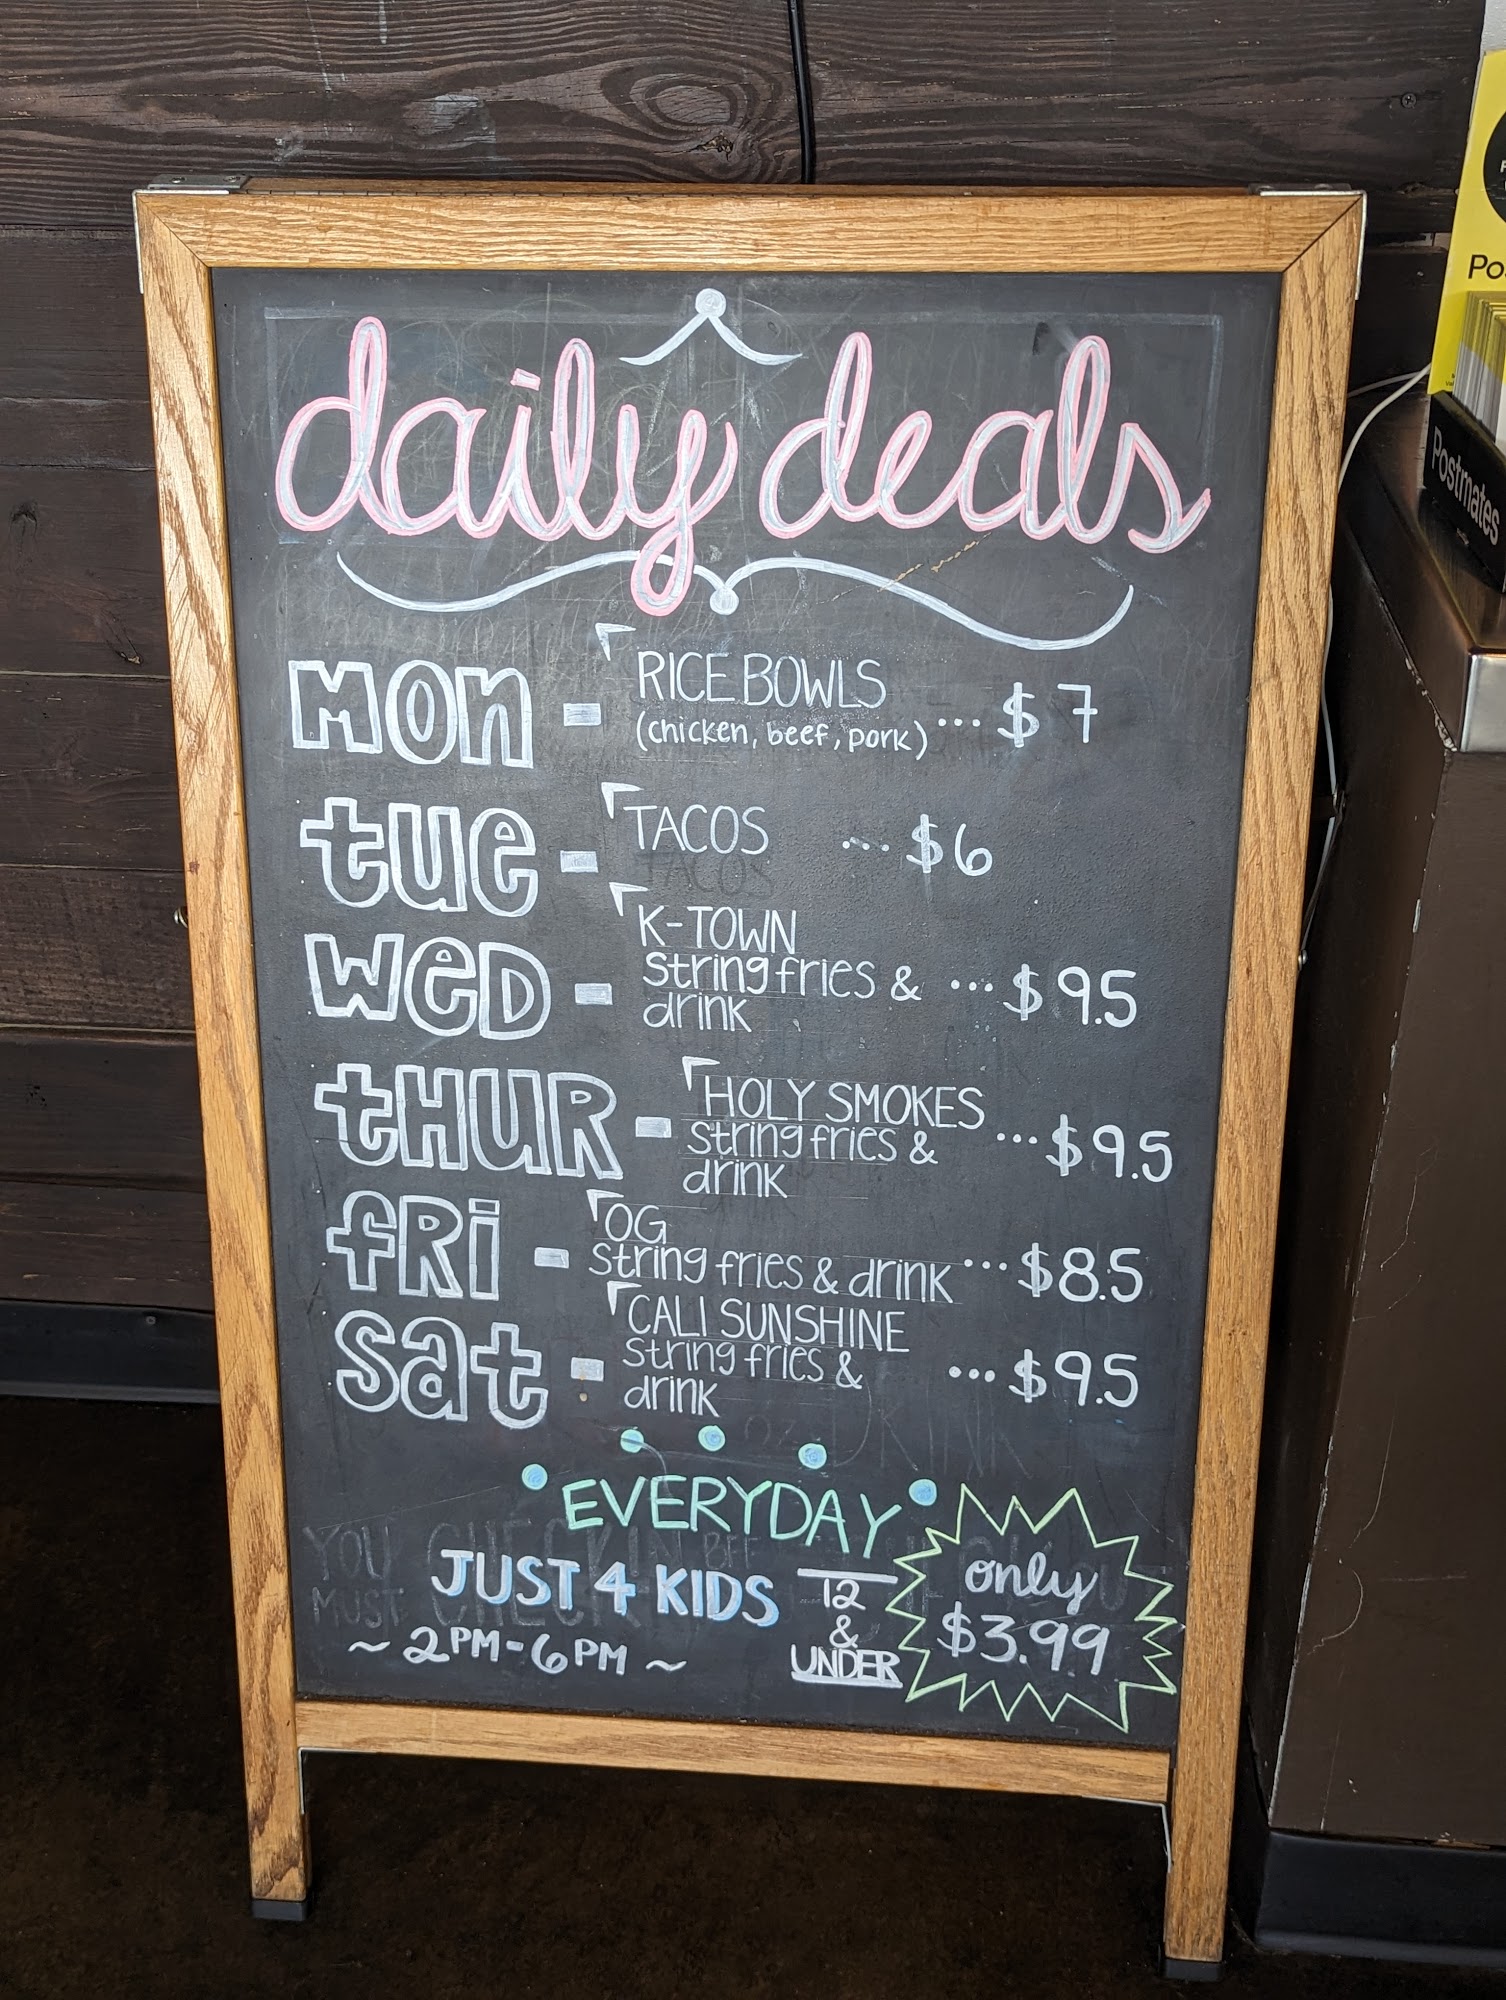 daily deals
MON - RICE BOWLS
(chicken, beef, pork) ... $7
TUE - TACOS ... $6
TACOS
WED - K-TOWN
string fries & ... $9.5
drink
THUR - HOLY SMOKES
string fries & ... $9.5
drink
FRI - OG
string fries & drink ... $8.5
SAT - CALI SUNSHINE
string fries & ... $9.5
drink
EVERYDAY
JUST 4 KIDS
~ 2PM-6PM ~
12
&
UNDER
only
$3.99
YOU
MUST
Postmates